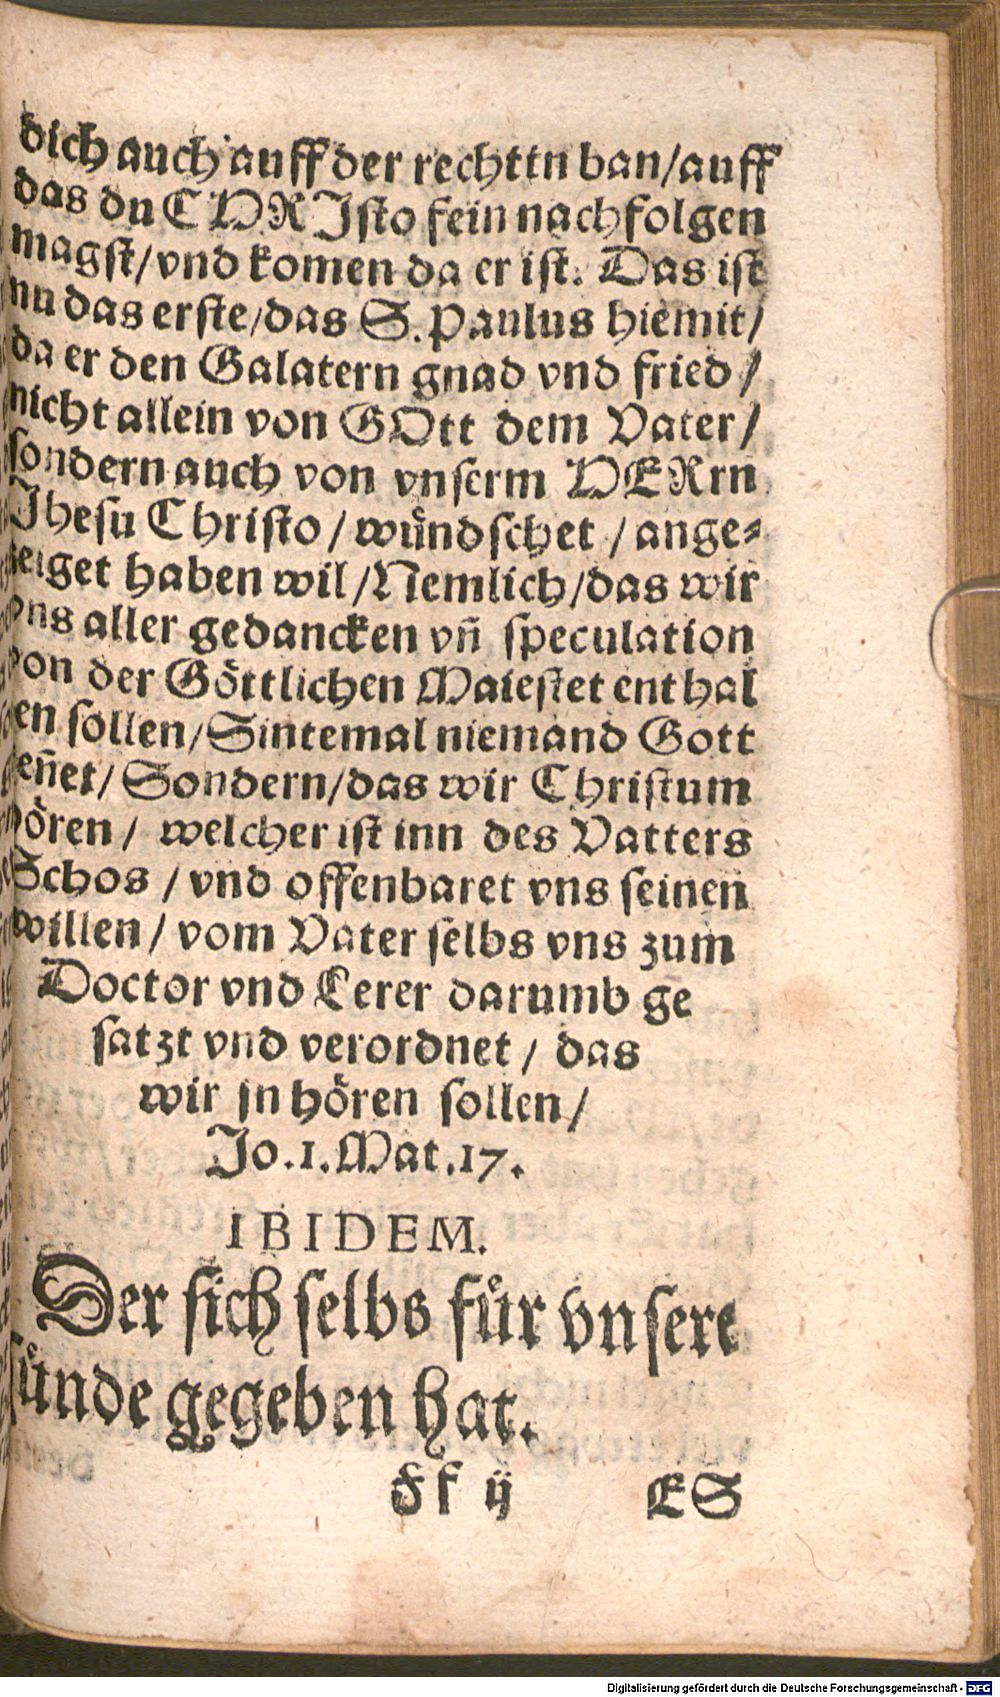 dich auch auff der rechttn ban/auff
das du CHRIsto fein nachfolgen
magst/vnd komen da er ist. Das ist
nu das erste/das S. Paulus hiemit/
da er den Galatern gnad vnd fried/
nicht allein von GOtt dem Vater/
sondern auch von vnserm HERrn
Jhesu Christo/wündschet/ange⸗
eiget haben wil/Nemlich/das wir
vns aller gedancken vñ speculation
von der Göttlichen Maiestet enthal
en sollen/Sintemal niemand Gott
eñet/Sondern/das wir Christum
hören/welcher ist inn des Vatters
Schos/vnd offenbaret vns seinen
willen/vom Vater selbs vns zum
Doctor vnd Lerer darumb ge
satzt vnd verordnet/das
wir jn hören sollen/
Jo.1.Mat.17.
IBIDEM.
Der sich selbs für vnsere
sünde gegeben hat.
Ff ij ES
Digitalisierung gefördert durch die Deutsche Forschungsgemeinschaft - DFG